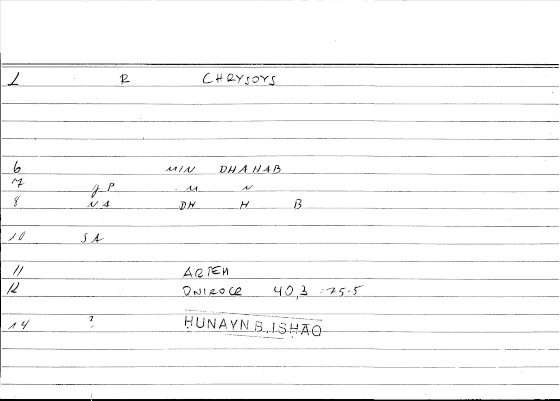 1 R CHRYSOYS
6 MIN DHAHAB
7 gP M N
8 NA DH H B
10 SA
11 ARTEM
12 ONIROCR 40,3 = 75.5
14 ? HUNAYN B. ISHAQ